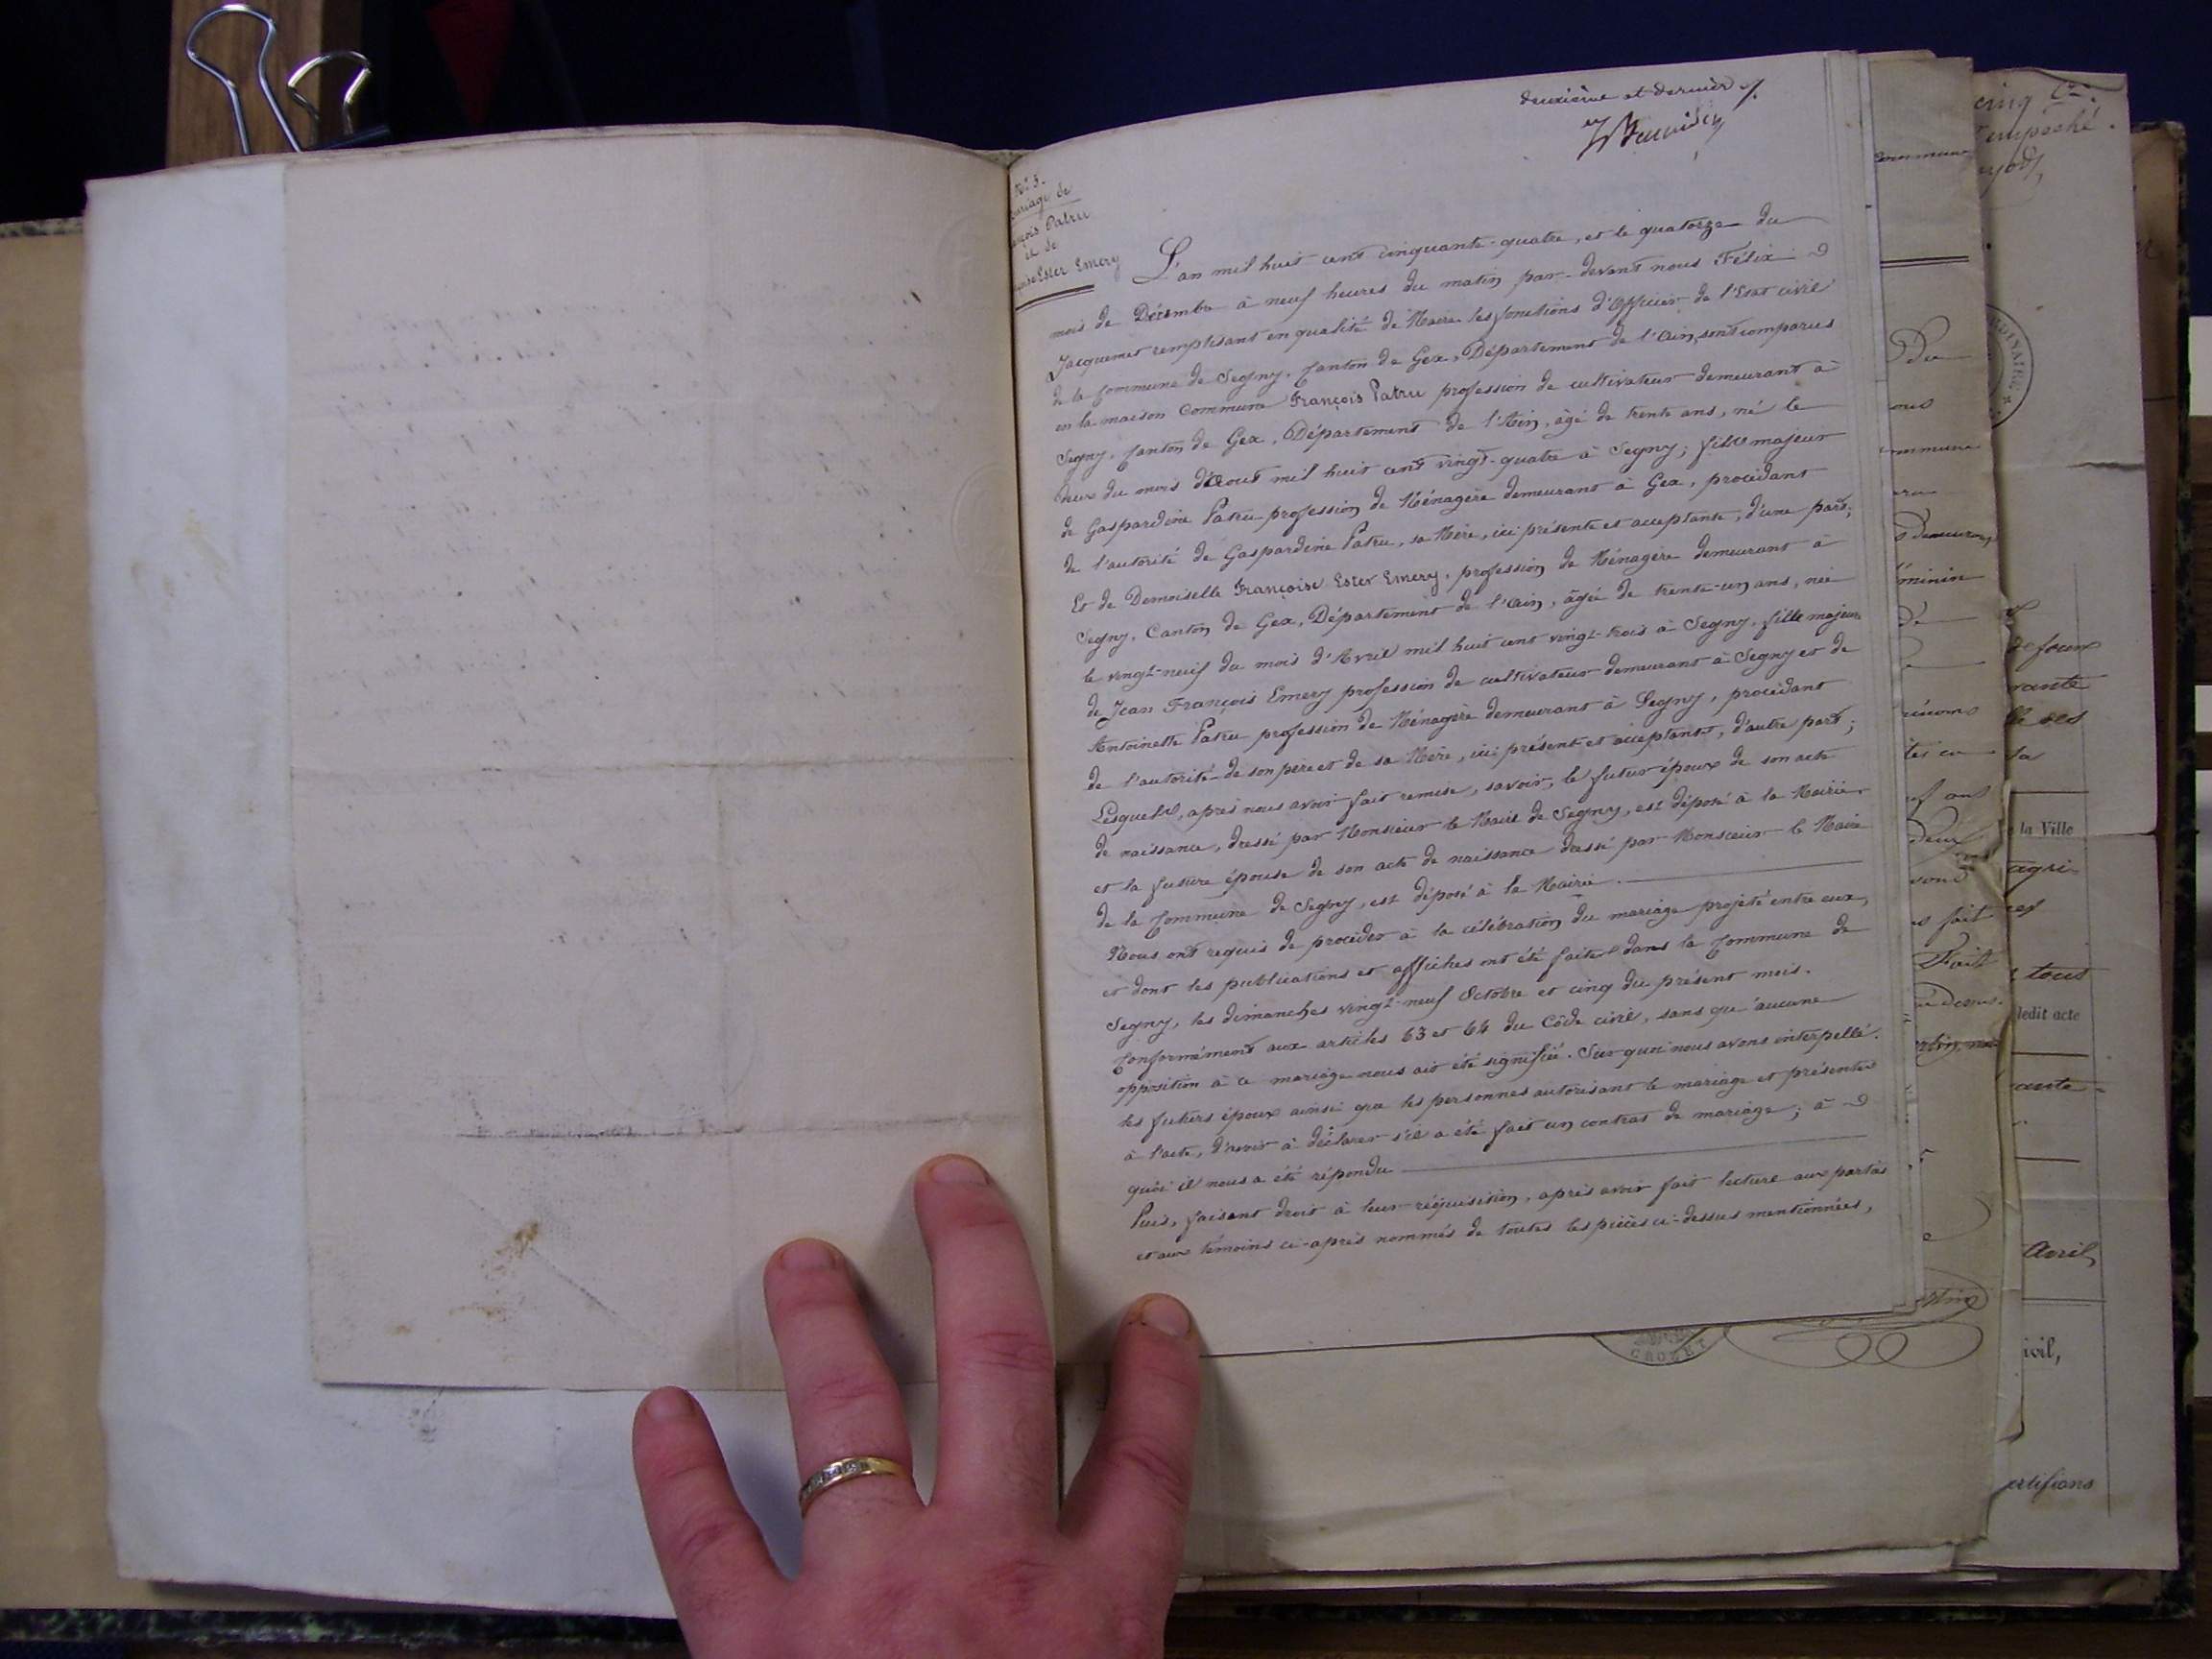 deuxième et dernier
N° 5.
mariage de
François Patru
et de
Ester Emery
L'an mil huit cent cinquante-quatre, et le quatorze du
mois de Décembre à neuf heures du matin par-devant nous Félix
Jacquemet remplissant en qualité de Maire les fonctions d'Officier de l'Etat civil
de la Commune de Segny, Canton de Gex, Département de l'Ain, sont comparus
en la maison Commune François Patru profession de cultivateur demeurant à
Segny, Canton de Gex, Département de l'Ain, âgé de trente ans, né le
deux du mois d'Aout mil huit cent vingt-quatre à Segny; fils majeur
de Gaspardine Patru profession de Ménagère demeurant à Gex, procédant
de l'autorité de Gaspardine Patru, sa Mère, ici présente et acceptante, d'une part;
Et de Demoiselle Françoise Ester Emery, profession de Ménagère demeurant à
Segny, Canton de Gex, Département de l'Ain, âgée de trente-un ans, née
le vingt-neuf du mois d'Avril mil huit cent vingt-trois à Segny, fille majeure
de Jean François Emery profession de cultivateur demeurant à Segny et de
Antoinette Patru profession de Ménagère demeurant à Segny, procédant
de l'autorité de son père et de sa Mère, ici présent et acceptant, d'autre part;
Lesquels, après nous avoir fait remise, savoir, le futur époux de son acte
de naissance, dressé par Monsieur le Maire de Segny, est déposé à la Mairie
et la future épouse de son acte de naissance dressé par Monsieur le Maire
de la Commune de Segny, est déposé à la Mairie.
Nous ont requis de procéder à la célébration du mariage projeté entre eux,
et dont les publications et affiches ont été faites dans la Commune de
Segny, les dimanches vingt-neuf Octobre et cinq du présent mois.
Conformément aux articles 63 et 64 du Côde civil, sans qu'aucune
opposition à ce mariage nous ait été signifiée. Sur quoi nous avons interpellé
les futurs époux ainsi que les personnes autorisant le mariage et présentes
à l'acte, d'avoir à déclarer s'il a été fait un contrat de mariage; à
quoi il nous a été répondu
Puis, faisant droit à leur réquisition, après avoir fait lecture aux parties
et aux témoins ci-après nommés de toutes les pièces ci-dessus mentionnées,
cinq
empêché.
commune
Du
commune
féminin
fait
Fait
CROZET
vante
la Ville
agri-
tout
ledit acte
Avril
ivil,
ertifions